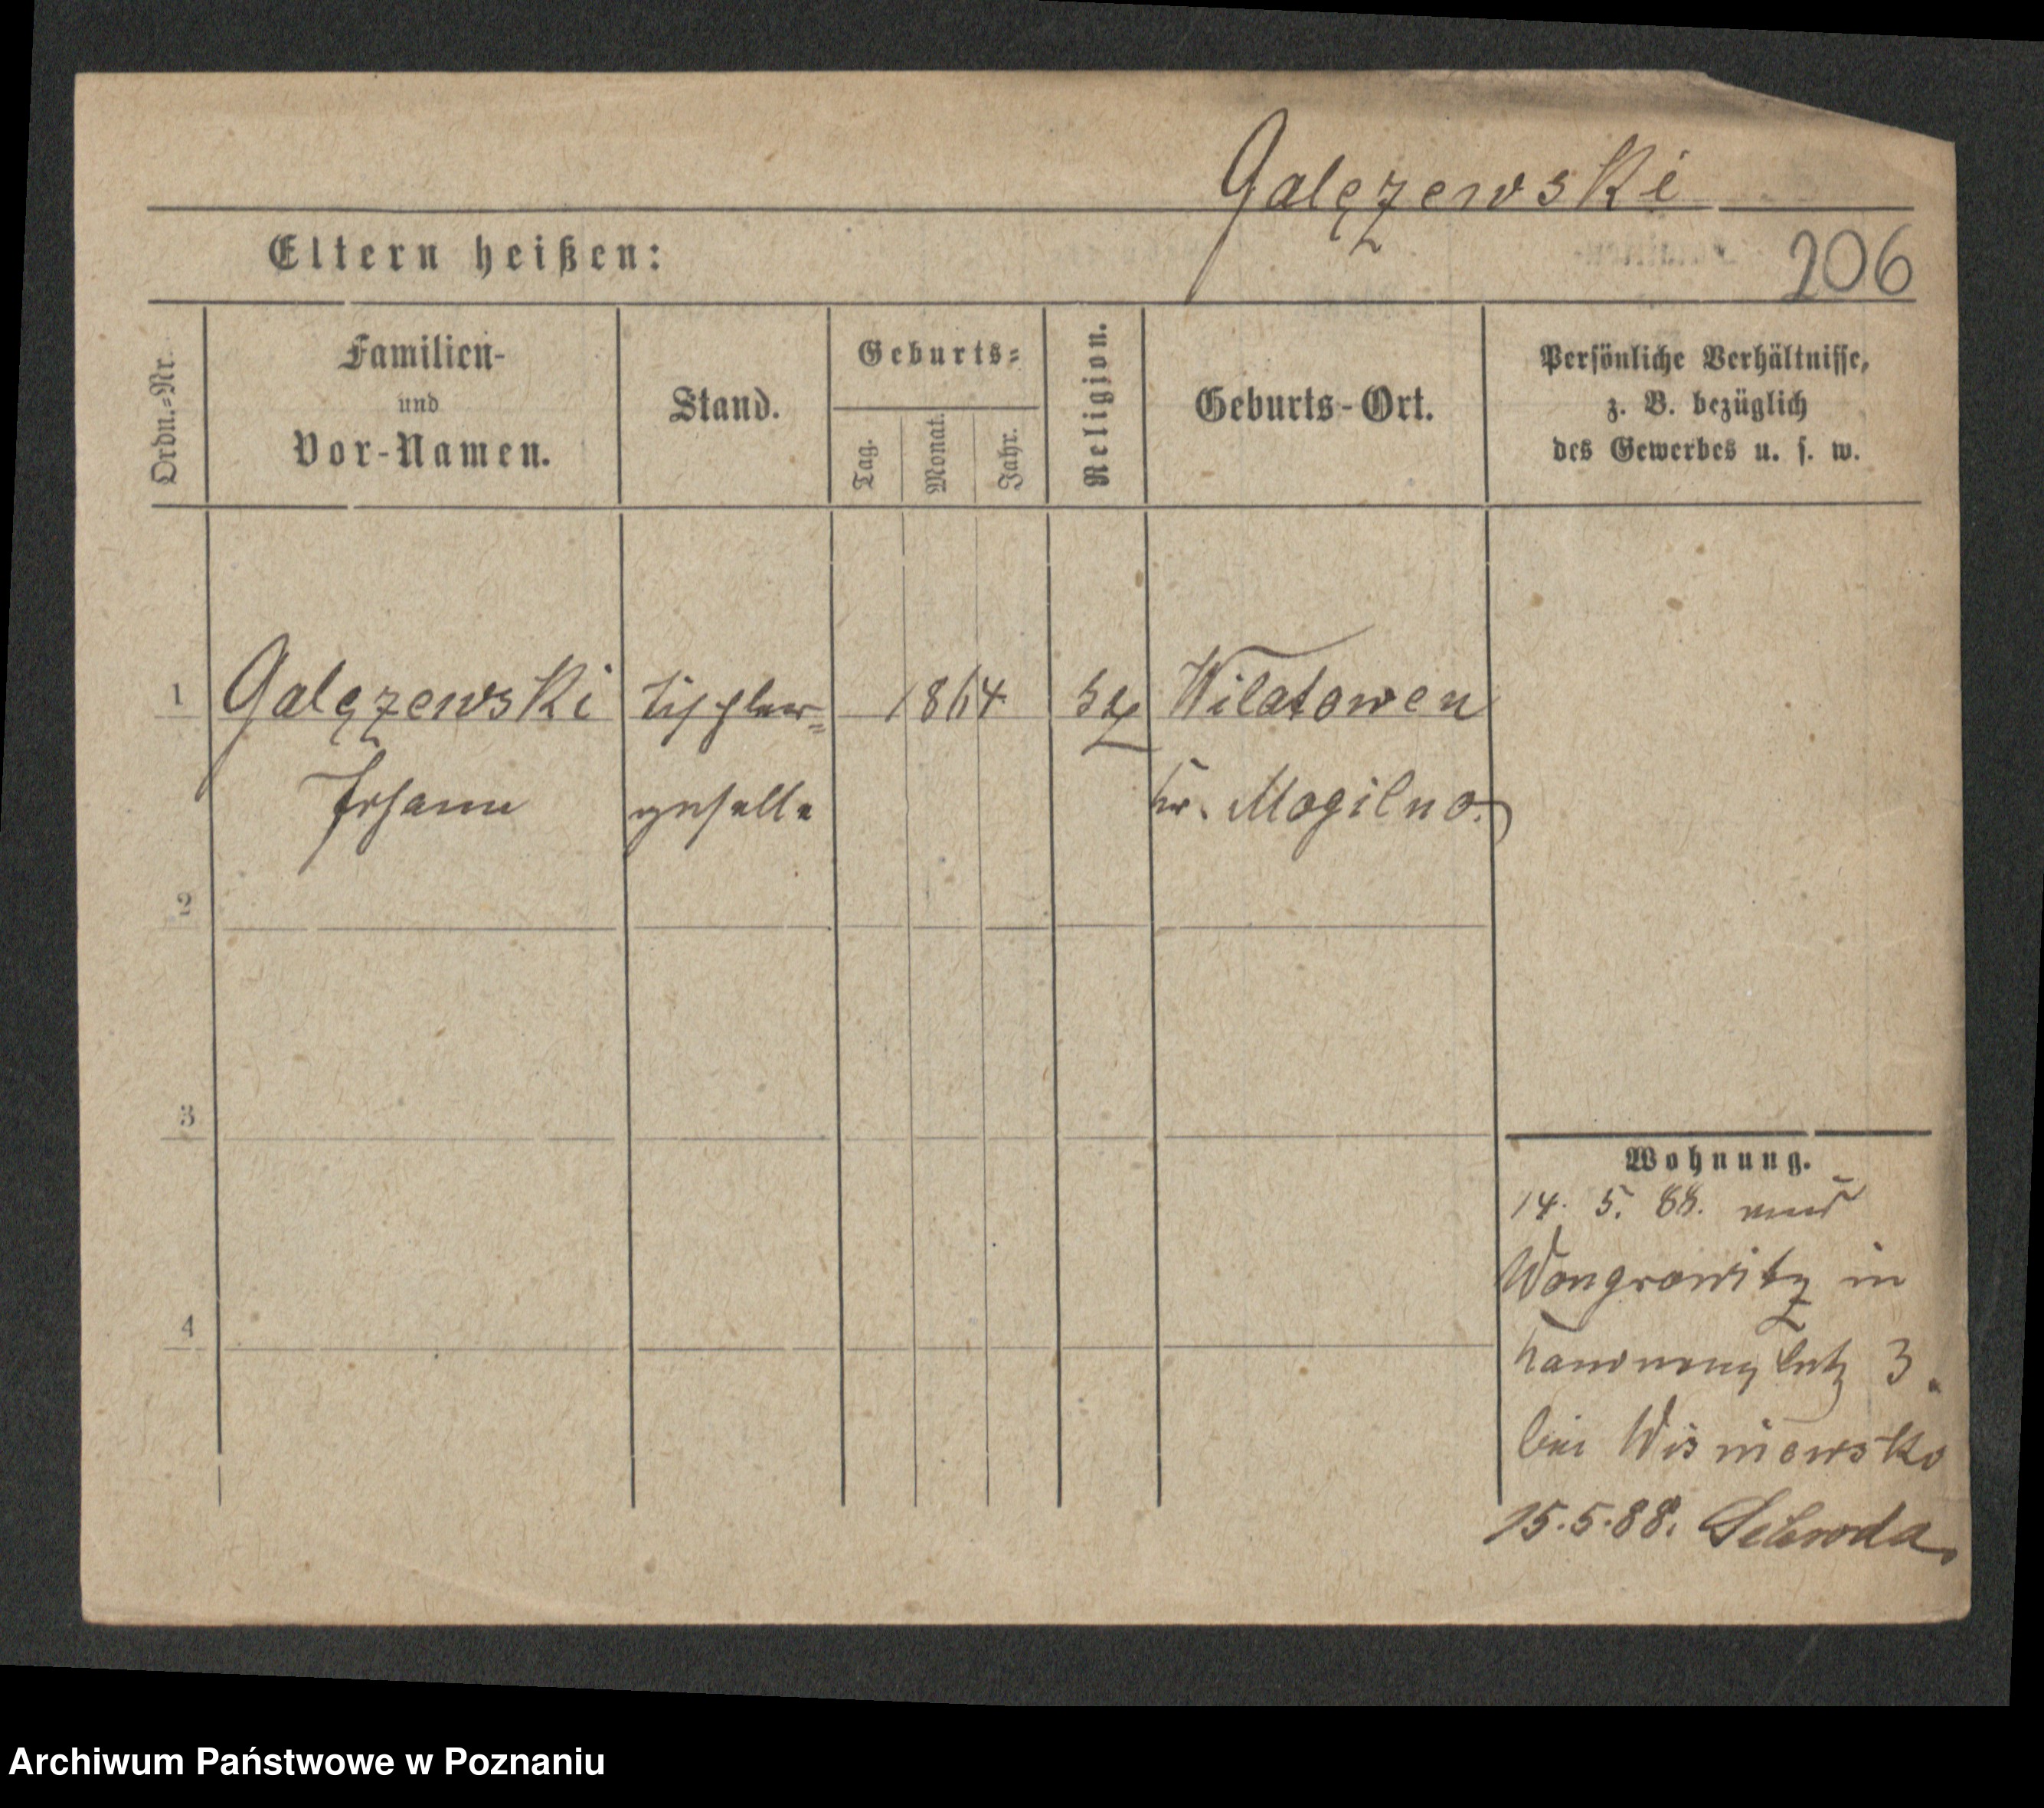 Galęzewski
Eltern heißen:
206
Ordn.=Nr.
Familien-
und
Vor-Namen.
Stand.
Geburts=
Tag.
Monat.
Jahr.
Religion.
Geburts-Ort.
Persönliche Verhältnisse,
z. B. bezüglich
des Gewerbes u. s. w.
1 Galęzewski Tischler= 1864 Wilatowen
Johann geselle Kr. Mogilno.
2
3
4
Wohnung.
14. 5. 88. aus
Wongrowitz in
3.
bei Wisniewsko
15.5.88. Schroda
Archiwum Państwowe w Poznaniu